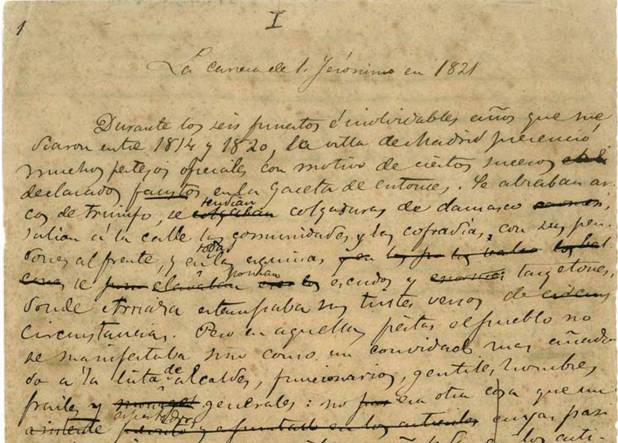 1
I
La carrera de S. Jerónimo en 1821
Durante los seis funestos é inolvidables años que me
diaron entre 1814 y 1820, la villa de Madrid presenció
muchos festejos oficiales con motivo de ciertos sucesos
declarados faustos en la Gaceta de entonces. Se alzaban ar
tendian
cos de triunfo, se colgaban colgaduras de damasco
salian á la calle las comunidades y las cofradías, con sus pen
todas
dones al frente, y en las esquinas
ponian
se escudos y targetones,
donde Arriaza estampaba sus tristes versos de
circunstancias. Pero en aquellas fiestas el pueblo no
se manifestaba sino como un convidado mas, añadi
do á la lista de alcaldes, funcionarios, gentiles hombres,
frailes y generales: no era otra cosa que un
espectador
cuyas pasi